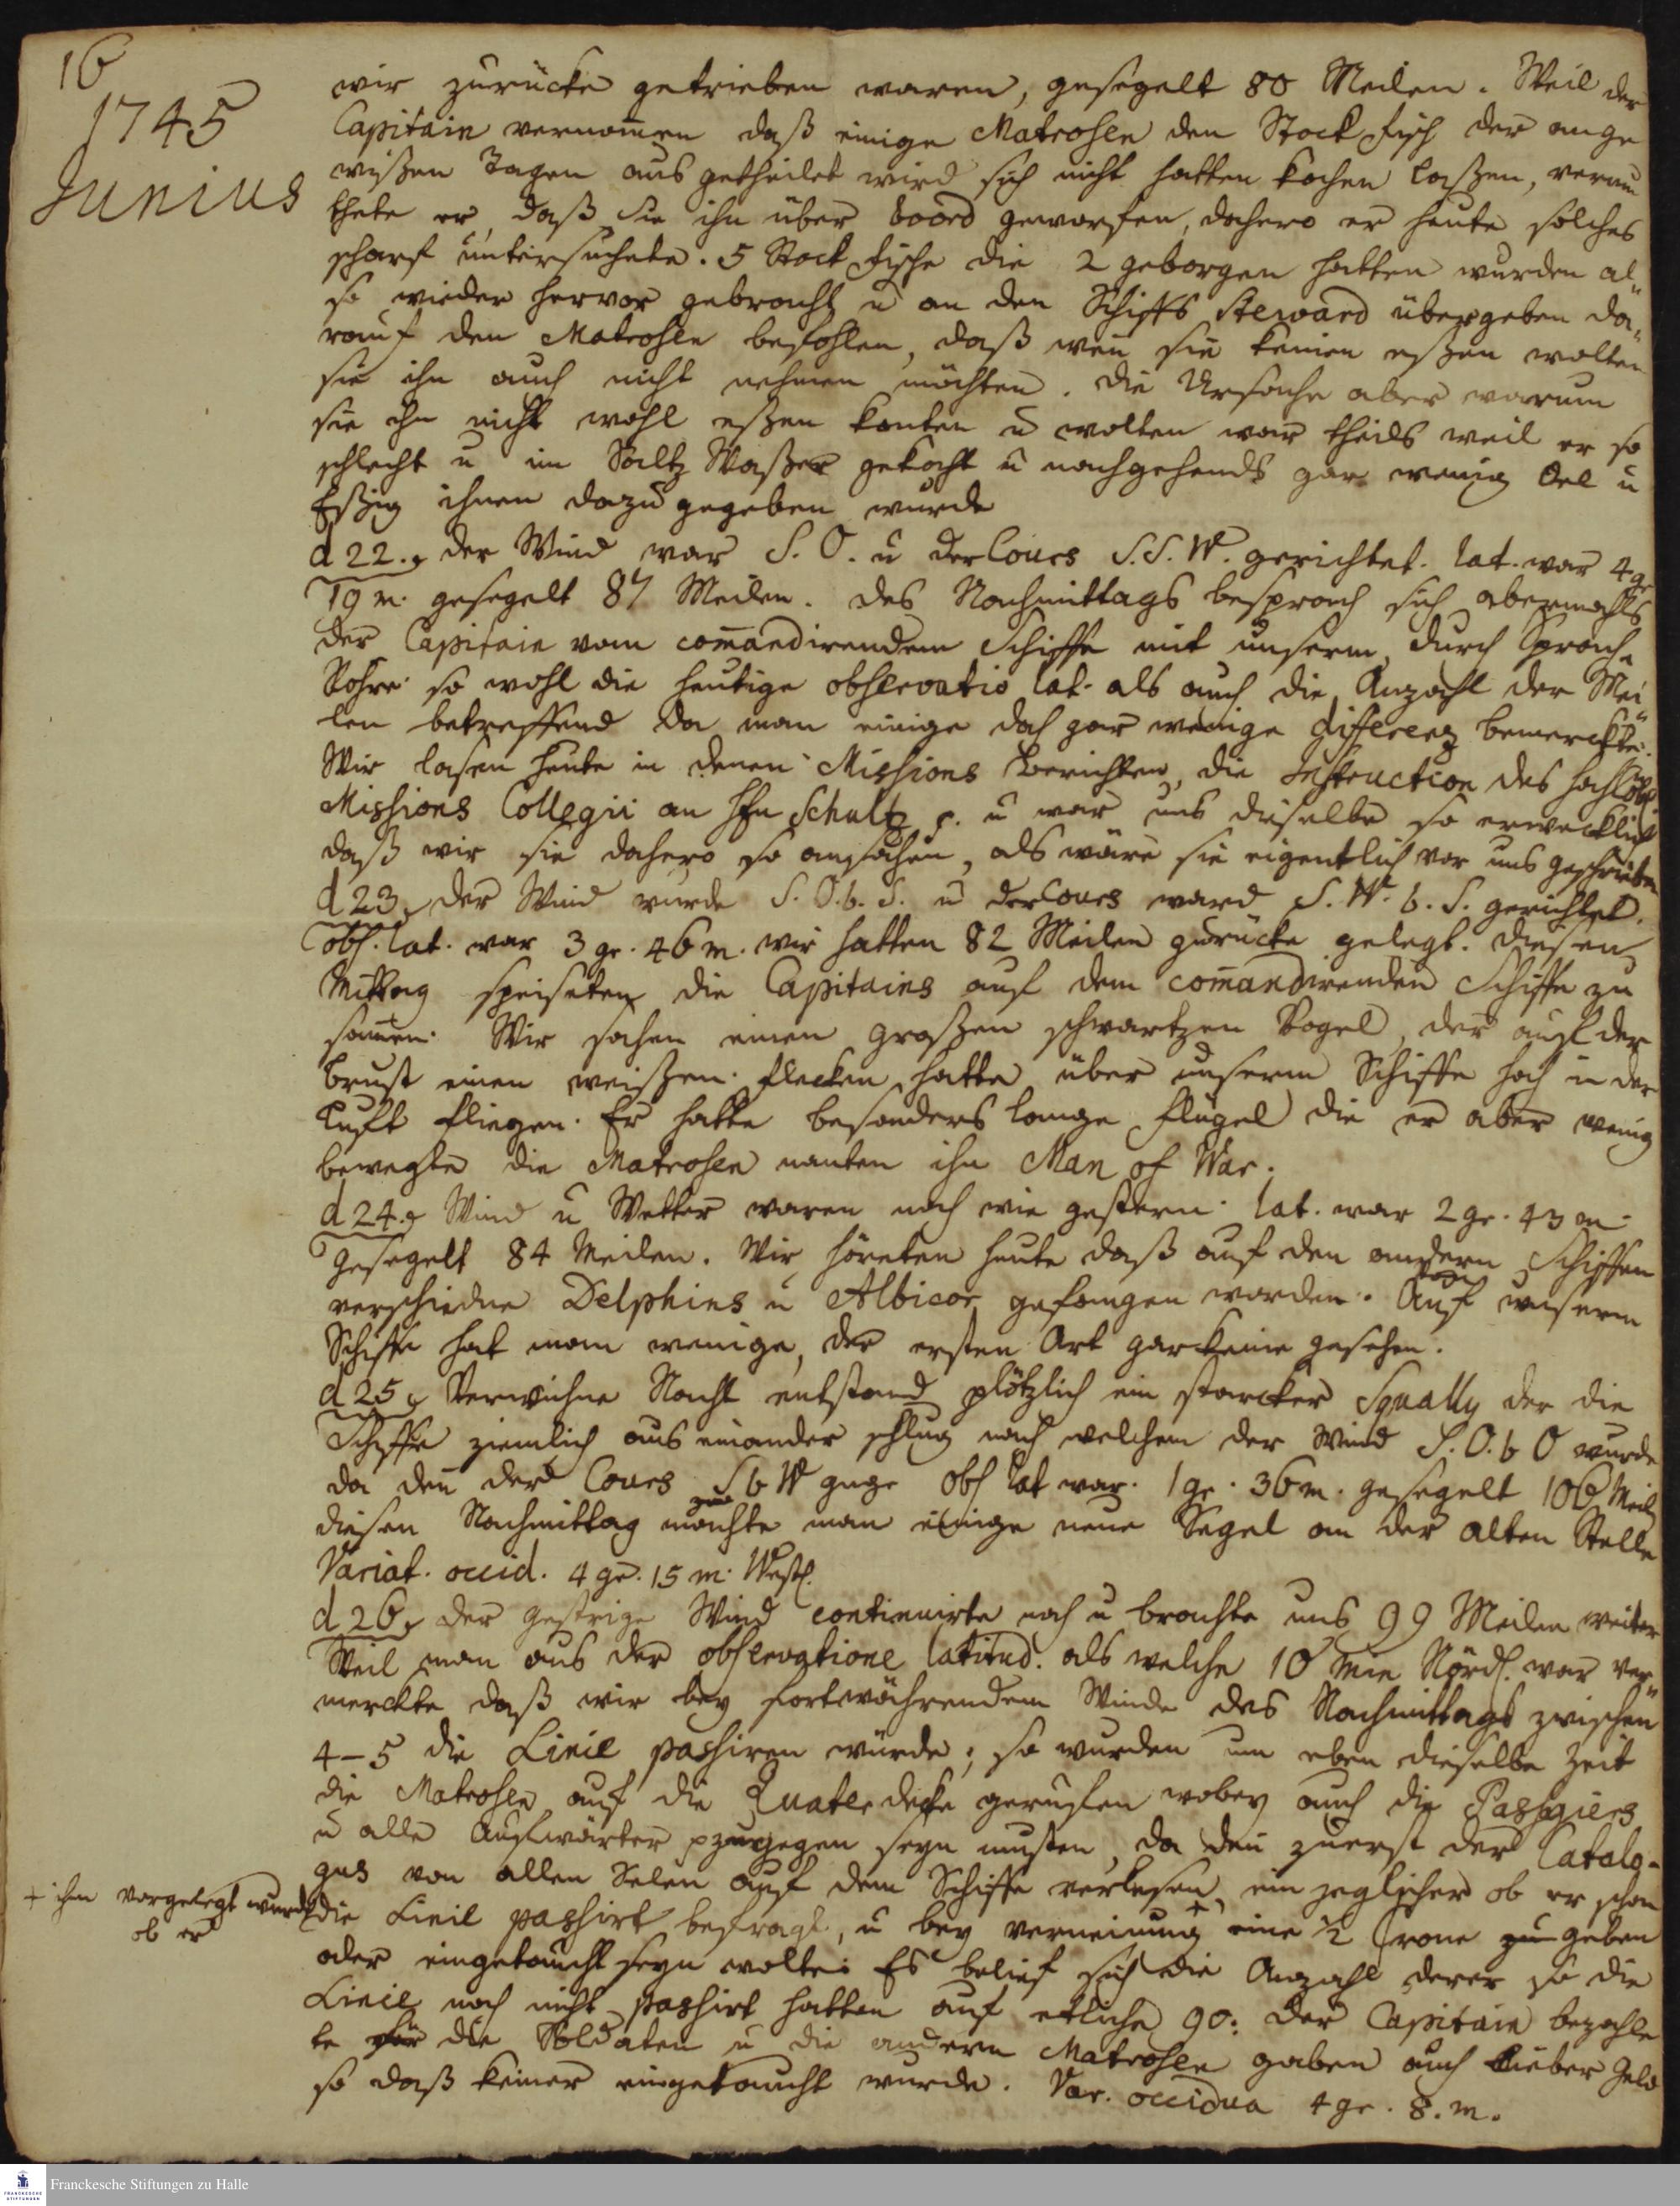 16
1745
Junius
wir zurücke getrieben waren, gesegelt 80 Meilen. Weil der
Capitain vernom̅en daß einige Matrosen den Stock fisch der an ge
wißen Tagen aus getheilet wird sich nicht hatten kochen laßen, verm
thete er, daß Sie ihn über boord geworfen, dahero er heute solches
scharf untersuchete. 5 Stock fische die 2 geborgen hatten wurden al„
so wieder hervor gebracht u an den Schiffs Steward übergeben da„
rauf den Matrosen befohlen, daß wen̅ sie keinen eßen wolten
sie ihn auch nicht nehmen möchten. Die Ursache aber warum
sie ihn nicht wohl eßen konten u wolten war theils weil er so
schlecht u im Saltz Waßer gekocht u nachgehends gar wenig Oel u
Eßig ihnen dazu gegeben wurde
d 22. der Wind war S. O. u der Cours S. S. W. gerichtet. lat. war 4 gr
19 m. gesegelt 87 Meilen. Des Nachmittags besprach sich abermahls
der Capitain vom com̅andirendem Schiffe mit unserm, durch Sprach„
Rohre so wohl die heutige observatio lat. als auch die Anzahl der Mei„
len betreffend da man einige doch gar wenige differenz bemerckte.
Wir lasen heute in denen Missions Berichten, die Instruction des hochlöbl.
Missions Collegii an Hn Schultz p. u war uns dieselbe so erwecklich
daß wir sie dahero so ansahen, als wäre sie eigentlich vor uns geschrieben
d 23. Der Wind wurde S. O. b. S. u der Cours ward S. W. b. S. gerichtet.
obs. lat. war 3 gr. 46 m. wir hatten 82 Meilen zurücke gelegt. Diesen
Mittag speiseten die Capitains auf dem com̅andirenden Schiffe zu
sam̅en. Wir sahen einen großen schwartzen Vogel, der auf der
Brust einen weißen flecken hatte über unserm Schiffe hoch in der
Luft fliegen. Er hatte besonders lange flügel die er aber wenig
bewegte die Matrosen nanten ihn Man of War.
d 24. Wind u Wetter waren noch wie gestern. lat. war 2 gr. 43 m.
gesegelt 84 Meilen. Wir höreten heute daß auf den andern Schiffen
verschiedne Delphins u Albicor gefangen worden. Auf unserm
Schiffe hat man wenige, der ersten Art gar keine gesehen.
d 25. Verwichne Nacht entstand plötzlich ein starcker Squally der die
Schiffe ziemlich aus einander schlug nach welchem der Wind S. O. b O wurde
da den̅ der Cours S b W ginge obs lat war. 1 gr. 36 m. gesegelt 106 Meil
diesen Nachmittag machte man einige neue Segel an der alten Stelle
Variat. occid. 4 gr. 15 m. Westl.
d 26. Der gestrige Wind continuirte noch u brachte uns 99 Meilen weiter
Weil man aus der observatione latitud. als welche 10 Min Nördl. war ver„
merckte daß wir bey fortwährendem Winde des Nachmittags zwischen
4–5 die Linie passiren würde; so wurden um eben dieselbe Zeit
die Matrosen auf die Quater decke gerufen wobey auch die Passagiers
u alle Aufwärter zugegen seyn musten, da den̅ zuerst der Catalo-
gus von allen Selen auf dem Schiffe verlesen, ein jeglicher ob er schon
die Linie passirt befragt, u bey verneinung + eine ½ Crone zu geben
+ ihm vorgelegt wurde
ob er
oder eingetaucht seyn wolte. Es belief sich die Anzahl derer so die
Linie noch nicht passirt hatten auf etliche 90: Der Capitain bezahle
te für die Soldaten u die andern Matrosen gaben auch lieber Geld
so daß keiner eingetaucht wurde. Var. occidua 4 gr. 8. m.
FRANCKESCHE STIFTUNGEN
Franckesche Stiftungen zu Halle